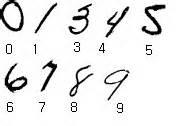 0 1 3 4 5
0 1 3 4 5
6 7 8 9
6 7 8 9